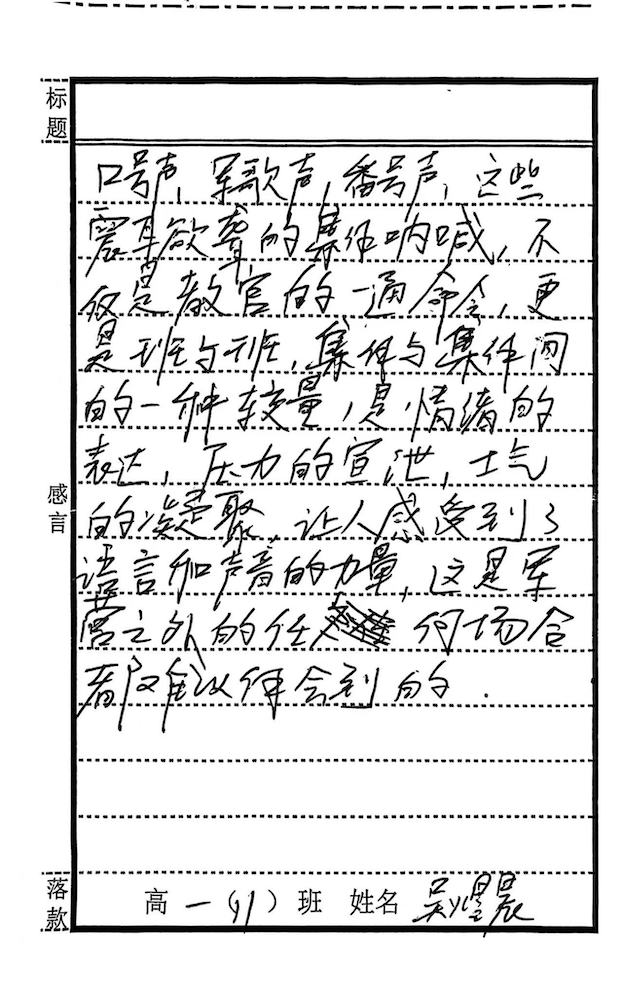 标题
口号声，军歌声，番号声，这些
震耳欲聋的集体呐喊，不
仅是教官的一通命令，更
是班与班，集体与集体间
的一种较量，是情绪的
表达，压力的宣泄，士气
的凝聚，让人感受到了
语言和声音的力量，这是军
营之外的任何场合
都难以体会到的.
感言
落款
高一（11）班 姓名 吴煜晨